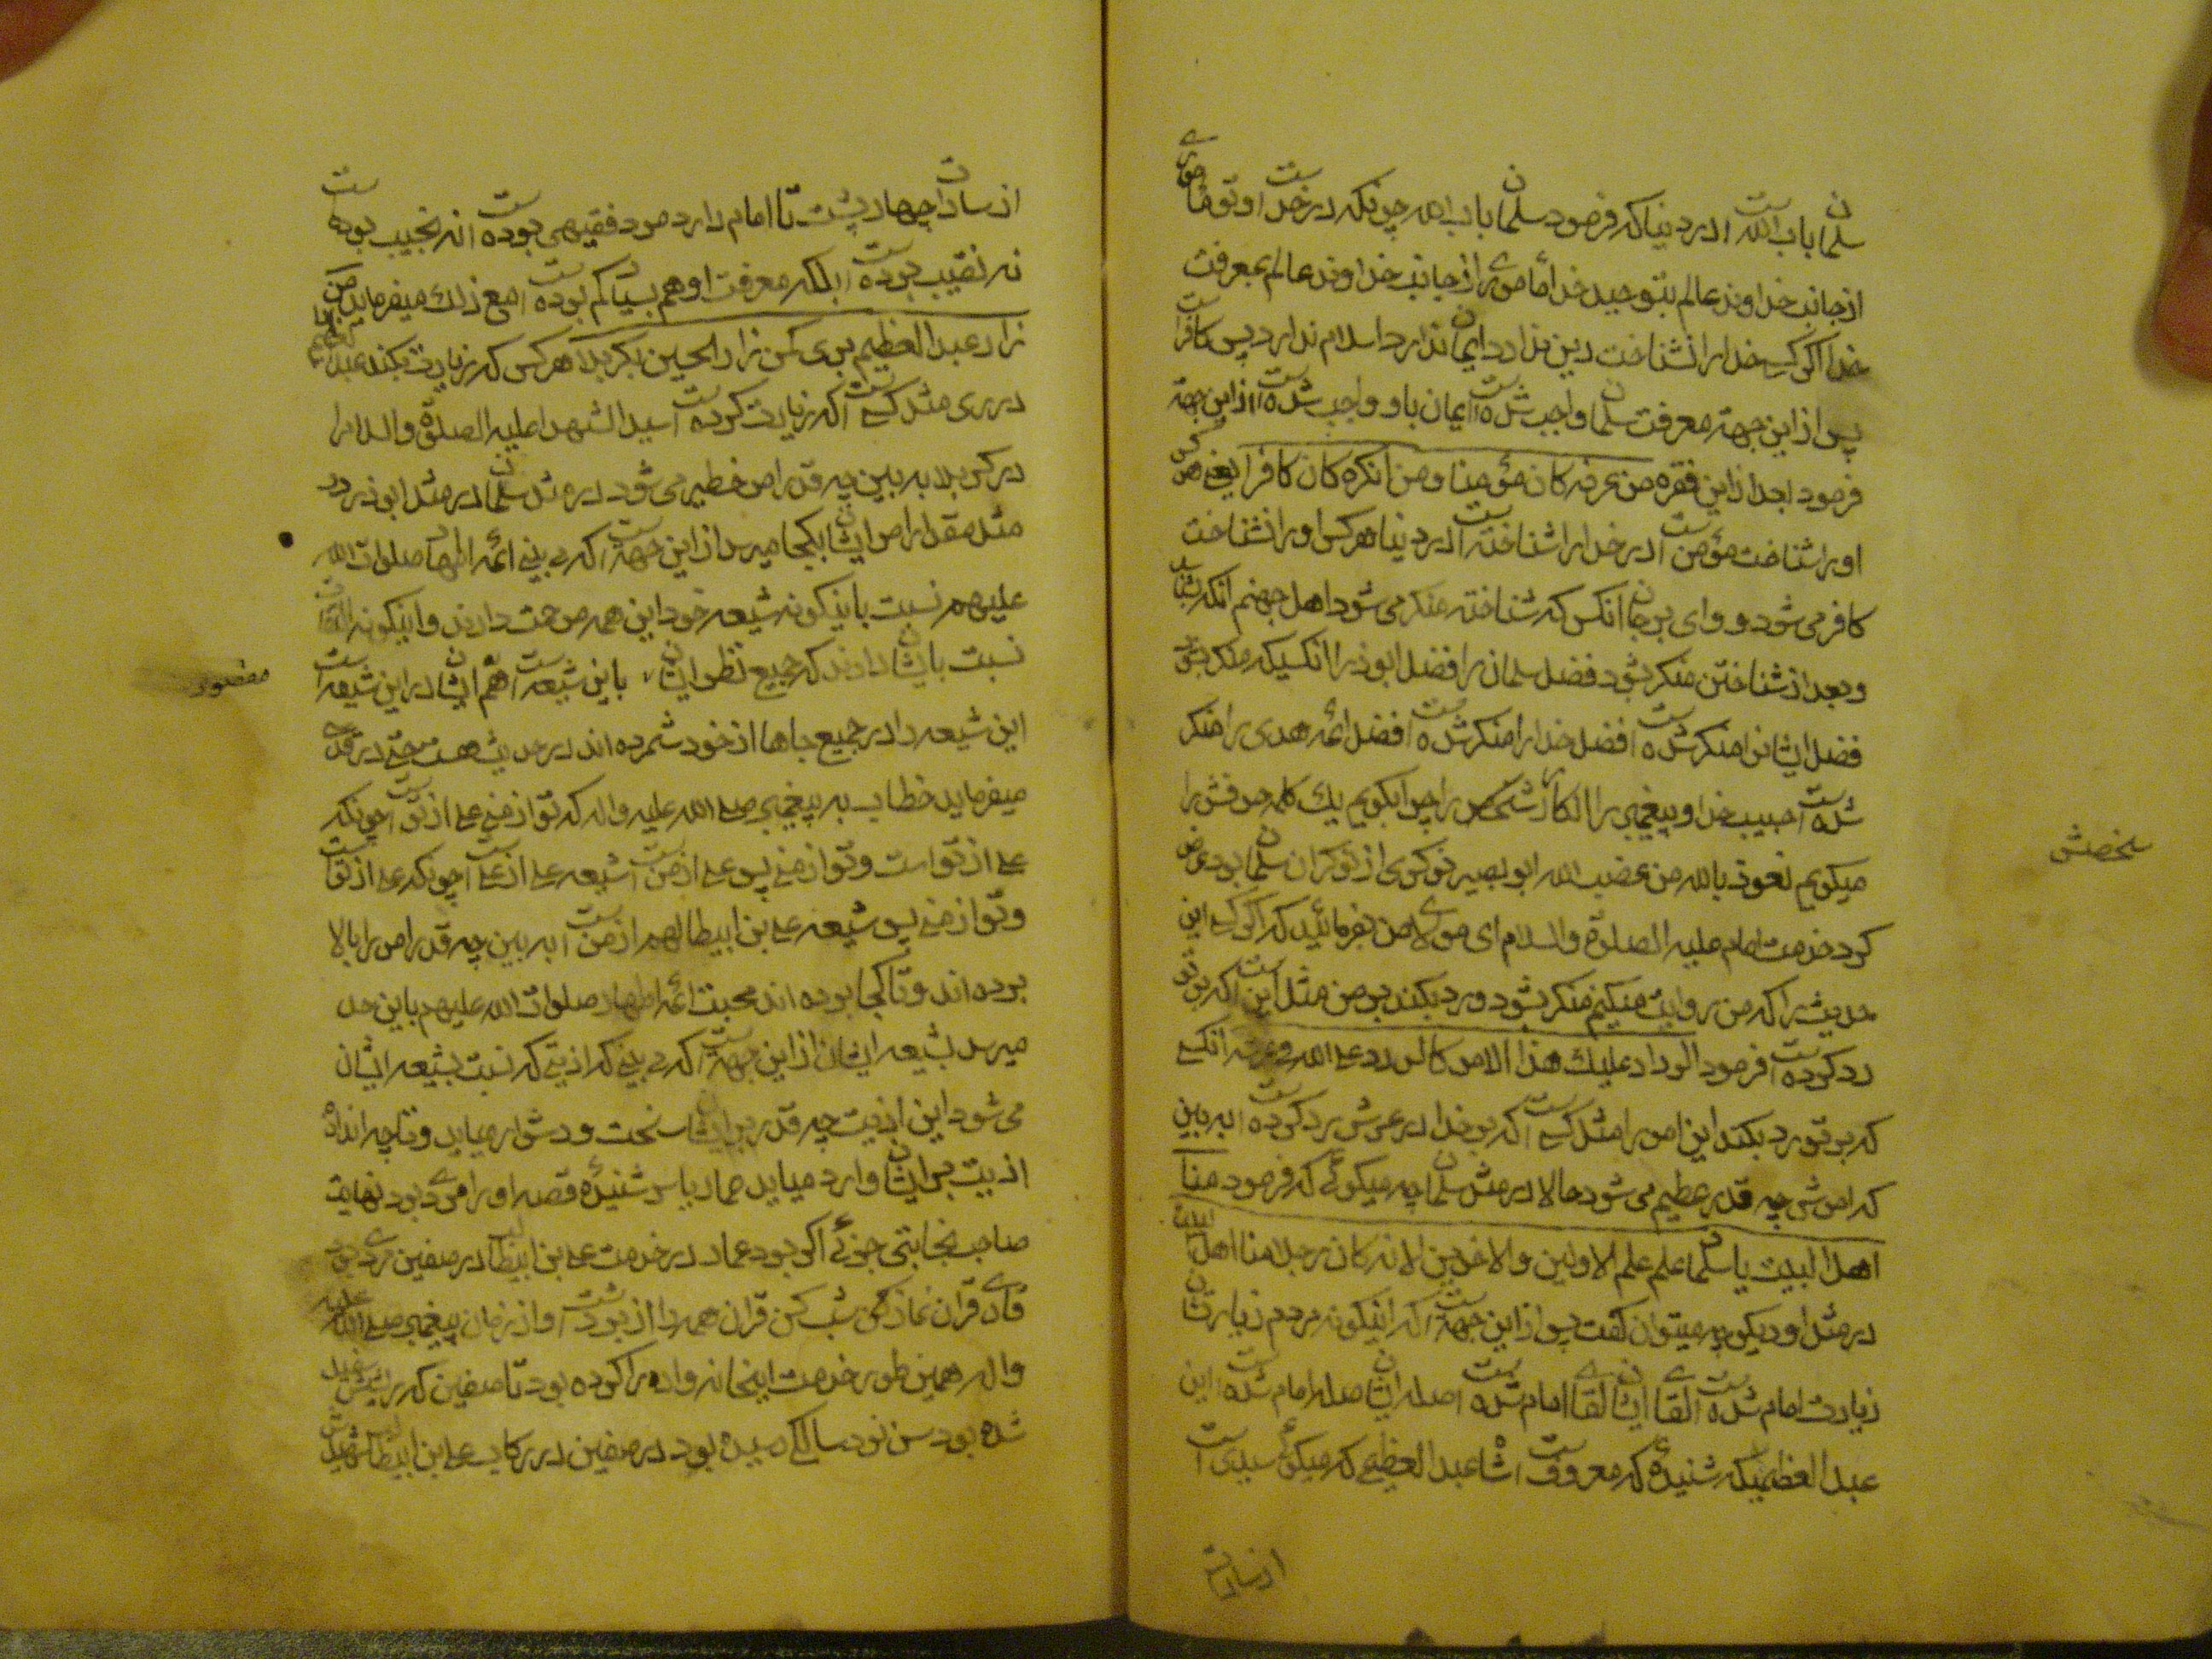 سلمان باب الله است در دنیا که فرمود سلمان باب الله چونکه در خداست او تو مأموری
از جانب خداوند عالم بتوحید خدا مأموری از جانب خداوند عالم بمعرفت
خدا اگر کسی خدا را نشناخت دین ندارد ایمان ندارد اسلام ندارد پس کافر است
پس از این جهة معرفت سلمان واجب شده است ایمان باو واجب شده است از این جهة
فرمود بعد از این فقره من عرفه کان مؤمنا و من انکره کان کافرا یعنی هر کس
او را شناخت مؤمن است در خدا را شناخته است در دنیا هر کس او را نشناخت
کافر می شود و وای بر جان انکس که شناخته منکر می شود اهل جهنم انکه
و بعد از شناختن منکر بشود فضل سلمان را فضل ابوذر را انکسیکه منکر بشود
فضل ایشان را منکر شده است فضل خدا را منکر شده است فضل ائمه هدی را منکر
شده است حبیب خدا و پیغمبر را انکار چرا بگویم یك کلمه حرفش را
میگویم نعوذ بالله من غضب الله ابو بصیر سلمان بود عرض
کرد خدمت امام علیه الصلوة والسلام ای مولای من بفرمائید که اگر کسی این
حدیث را که من روایت میکنم منکر بشود و رد بکند بر من مثل این است که بر تو
رد کرده است فرمود الراد علیك هذا الامر کالراد علی الله فی عرشه انکسی
که بر تو رد بکند این امر را مثل کسی است که بر خدا در عرش رد کرده است به بین
که امرش چه قدر عظیم می شود حالا در مثل سلمان چه میگوئی که فرمود منا
اهل البیت یا سلمان علم علم الاولین والاخرین لانه کان رجلا منا اهل البیت
در مثل او دیگر چه میتوان گفت پس از این جهة است که اینگونه مردم زیارتشان
زیارت امام شده است لقای ایشان لقای امام شده است صله ایشان صله امام شده است این
عبد العظیمیکه شنیدۀ که معروفست شاه عبد العظیم که میگوئی سیدی است
از سادات
بخصمش
از سادات چهار پشت تا امام دارد مرد فقیهی بوده است نه نجیب بوده است
نه نقیب بوده است بلکه معرفت او هم بسیار کم بوده است مع ذلك میفرماید من
زار عبد العظیم بری کمن زار الحسین بکربلا هر کس که زیارت بکند عبد العظیم را
در ری مثل کسی است که زیارت کرده است سید الشهدا علیه الصلوة والسلام را
در کربلا به بین چه قدر امر خطیر می شود در مثل سلمان در مثل ابوذر در
مثل مقداد امر ایشان بکجا میرسد از این جهة است که می بینی ائمه اطهار صلوات الله
علیهم نسبت باینگونه شیعه خود این همه مرحمت دارند و اینگونه التفات
نسبت بایشان دارند که جمیع نظر ایشان باین شیعه است همّ ایشان در این شیعه است
این شیعه را در جمیع جاها از خود شمرده اند در حدیث هست حتی در قدسی
میفرماید خطاب به پیغمبر صلی الله علیه واله که تو از منی علی از تو است چونکه
علی از تو است و تو از منی پس علی از من است شیعه علی از علی است چونکه علی از تو است
و تو از منی پس شیعه علی بن ابیطالب هم از من است به بین چه قدر امر را بالا
برده اند و تا کجا برده اند محبت ائمه اطهار صلوات الله علیهم باین حد
میرسد بشیعه ایشان از این جهة است که می بینی که اذیتی که نسبت بشیعه ایشان
می شود این اذیت چه قدر بر ایشان سخت و دشوار میاید و تا چه اندازه
اذیت بر ایشان وارد میاید عمار یاسر شنیدۀ قصه او را مردی بود نهایت
صاحب نجابتی جزئی اگر بود عمار در خدمت علی بن ابیطالب در صفین مردی بود
قاری قرآن نماز کن شب کن قران همه را از بر داشت و از زمان پیغمبر صلی الله علیه
واله همین طور خدمت اینخانه واده را کرده بود تا صفین که ریشش سفید
شده بود سن نود سالگی رسیده بود در صفین در رکاب علی بن ابیطالب شهید
مقصور